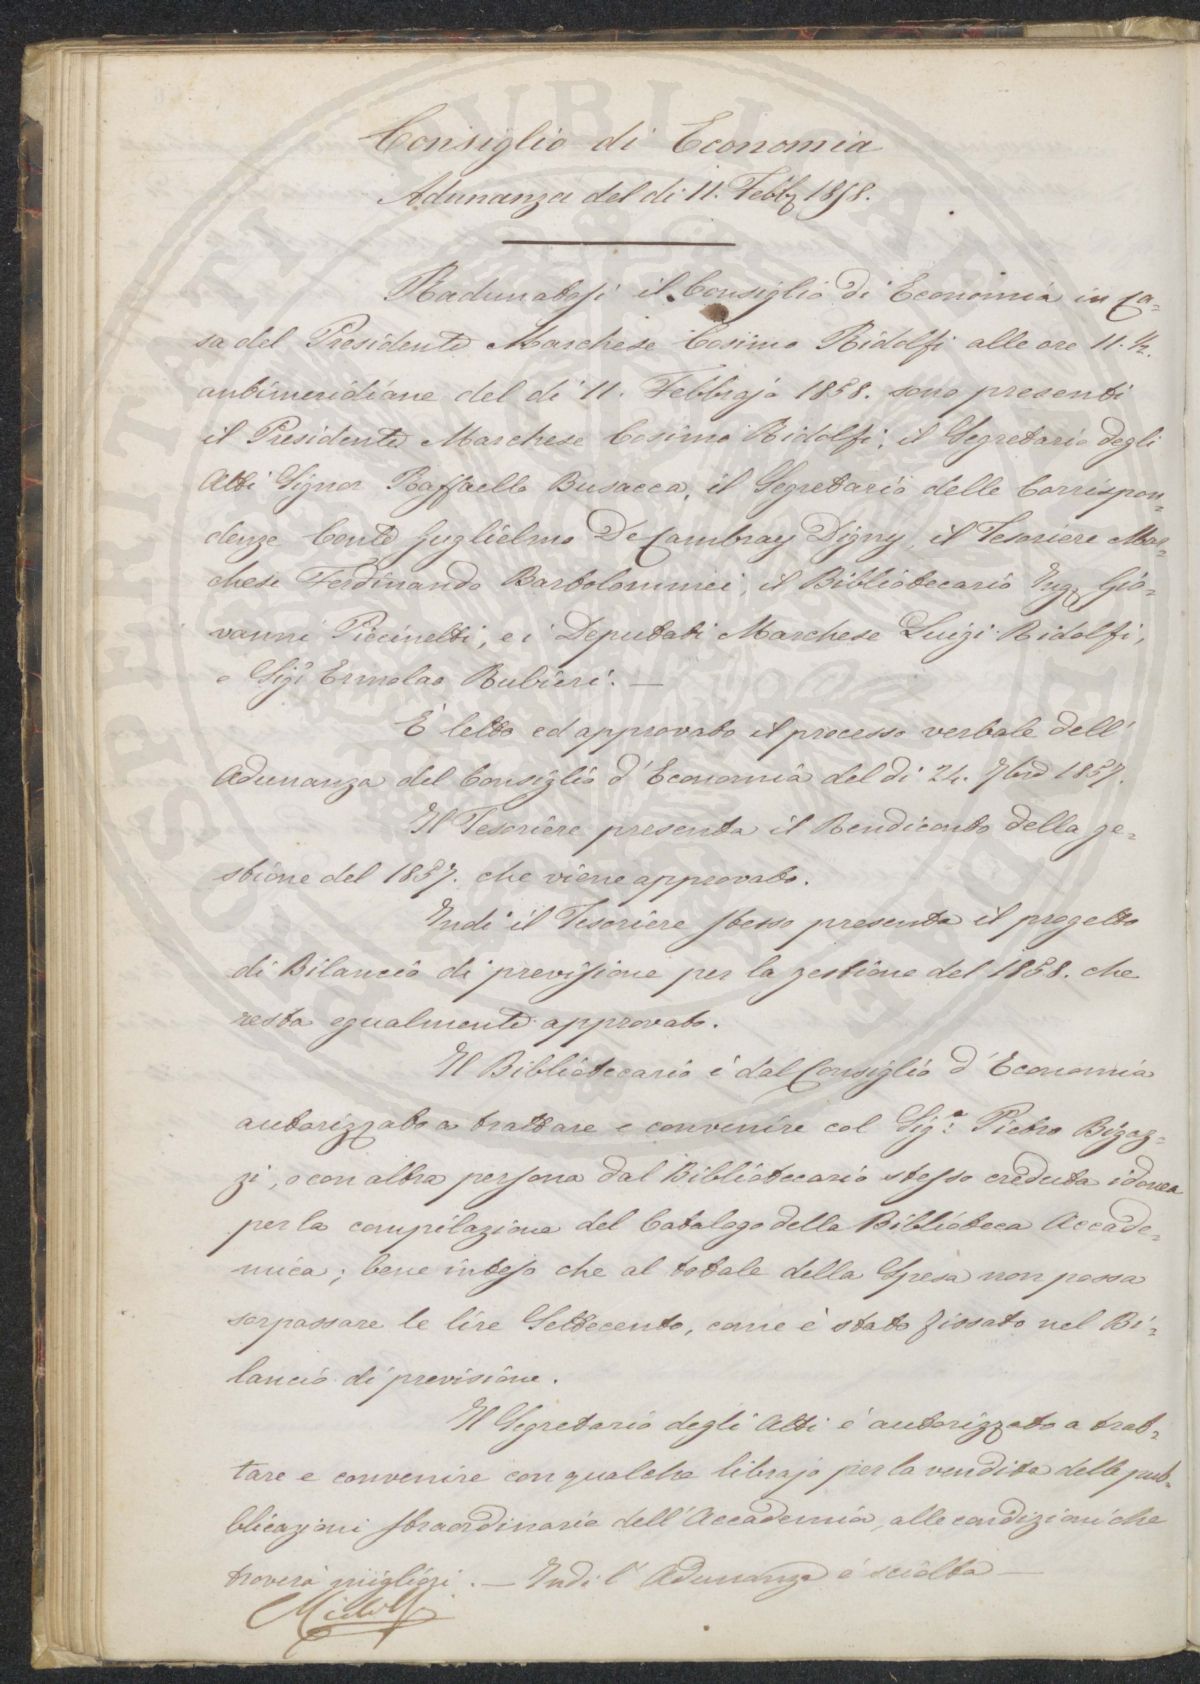 Consiglio di Economia
Adunanza del dì 11. Febb. 1858.
Radunatosi il Consiglio di Economia in ca-
sa del Presidente Marchese Cosimo Ridolfi alle ore 11. ½.
antimeridiane del dì 11. Febbrajo 1858. sono presenti
il Presidente Marchese Cosimo Ridolfi, il Segretario degli
Atti Signor Raffaello Busacca, il Segretario delle Corrispon-
denze Conte Guglielmo De Cambray Digny, il Tesoriere Mar-
chese Ferdinando Bartolommei, il Bibliotecario Ing. Gio-
vanni Piccinetti, e i Deputati Marchese Luigi Ridolfi,
e Sigr Ermolao Rubieri. —
È letto ed approvato il processo verbale dell'
Adunanza del Consiglio d'Economia del dì 21. 7bre 1857.
Il Tesoriere presenta il Rendiconto della ge-
stione del 1857. che viene approvato.
Indi il Tesoriere stesso presenta il progetto
di Bilancio di previsione per la gestione del 1858. che
resta egualmente approvato.
Il Bibliotecario è dal Consiglio d'Economia
autorizzato a trattare e convenire col Sigr. Pietro Bigaz-
zi, o con altra persona dal Bibliotecario stesso creduta idonea
per la compilazione del Catalogo della Biblioteca Accade-
mica; bene inteso che al totale della Spesa non possa
sorpassare le lire Settecento, come è stato fissato nel Bi-
lancio di previsione.
Il Segretario degli Atti è autorizzato a trat-
tare e convenire con qualche librajo per la vendita delle pub-
blicazioni straordinarie dell'Accademia, alle condizioni che
troverà migliori. — Indi l'Adunanza è sciolta —
CRidolfi
PROSPERITATI PUBLICAE AUGENDAE